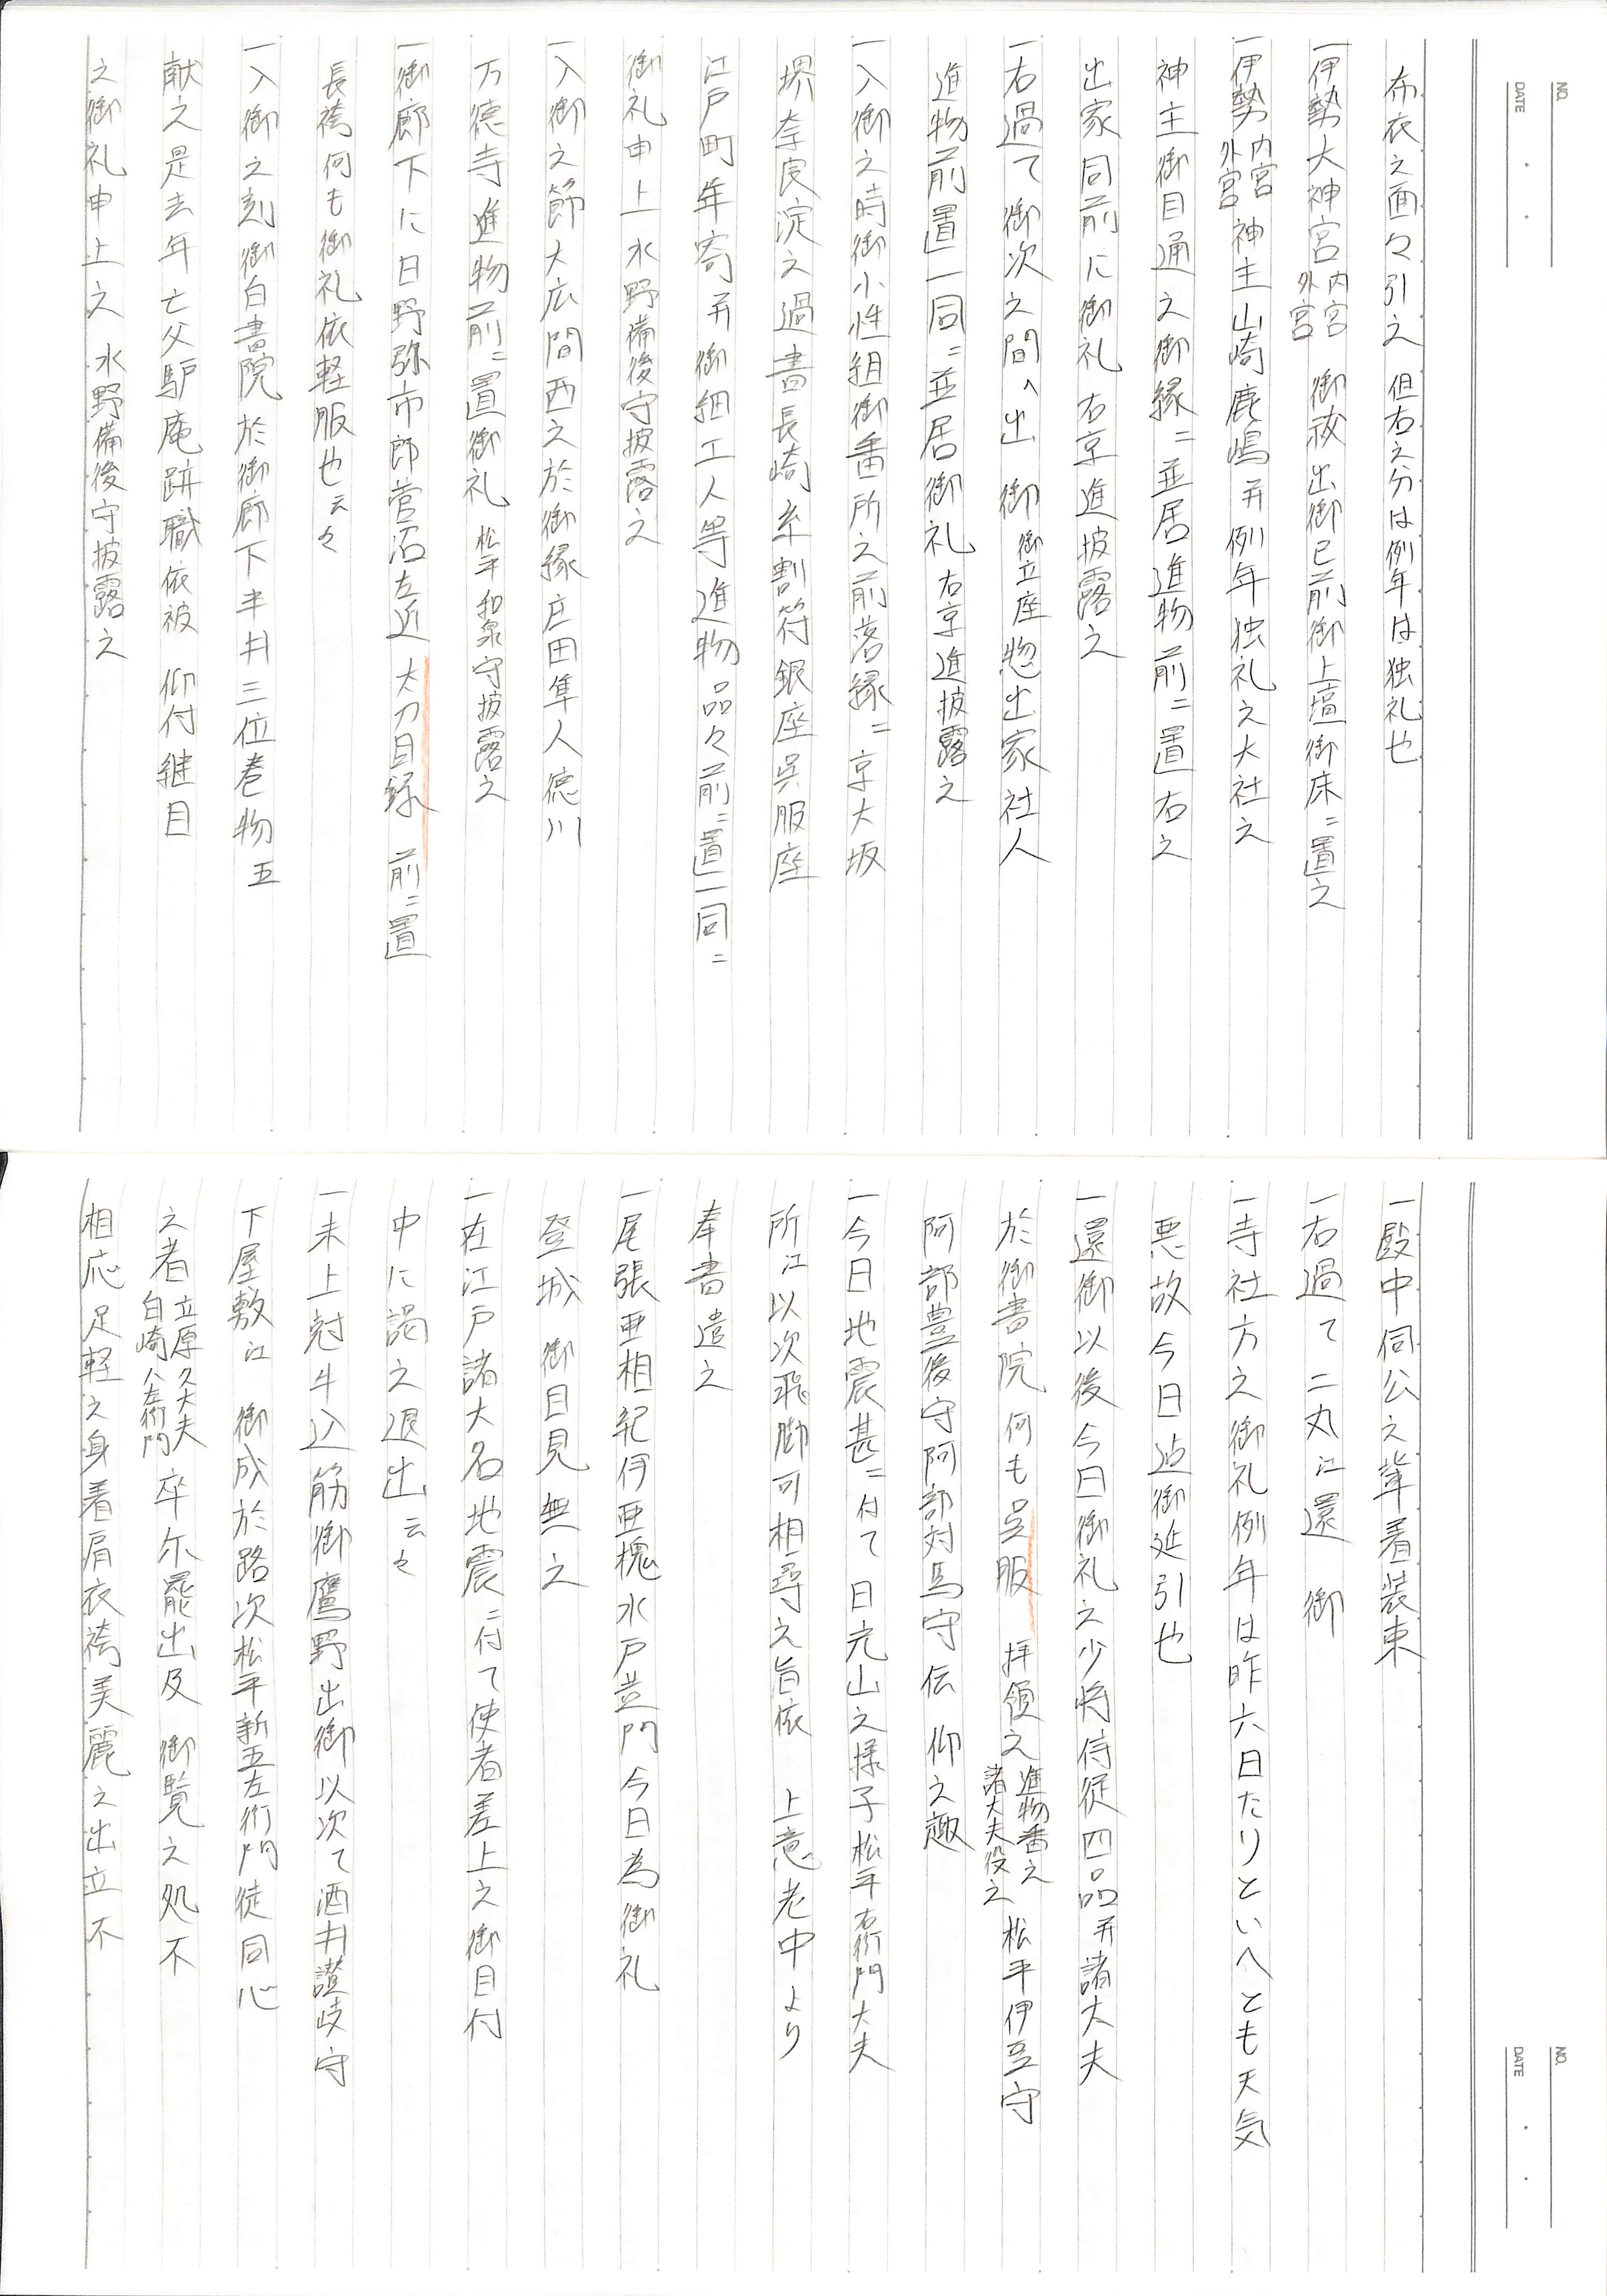 NO.
DATE
布衣之面々引之 但右之分は例年は独礼也
一伊勢大神宮内宮外宮 御祓出御已前御上壇御床ニ置之
一伊勢内宮外宮神主山崎鹿嶋并例年独礼之大社之
神主御目通之御縁ニ並居進物前ニ置右之
出家同前に御礼右京進披露之
一右過て御次之間へ出 御御立座惣出家社人
進物前置一同ニ並居御礼右京進披露之
一入御之時御小性組御番所之前落縁ニ京大坂
堺奈良淀之過書長崎糸割符銀座呉服座
江戸町年寄并御細工人等進物品々前ニ置一同ニ
御礼申上水野備後守披露之
一入御之節大広間西之於御縁庄田隼人徳川
万徳寺進物前ニ置御礼松平和泉守披露之
一御廊下に日野弥市郎菅沼左近太刀目録 前ニ置
長袴何も御礼依軽服也云々
一入御之刻御白書院於御廊下半井三位巻物五
献之是去年亡父驢庵跡職依被 仰付継目
之御礼申上之 水野備後守披露之
NO.
DATE
一殿中伺公之輩着装束
一右過て二丸江還 御
一寺社方之御礼例年は昨六日たりといへとも天気
悪故今日迠御延引也
一還御以後今日御礼之少将侍従四品并諸大夫
於御書院何も呉服 拝領之進物番之諸大夫役之 松平伊豆守
阿部豊後守阿部対馬守伝 仰之趣
一今日地震甚ニ付て日光山之様子松平右衛門大夫
所江以次飛脚可相尋之旨依 上意老中より
奉書遣之
一尾張亜相紀伊亜槐水戸黄門今日為御礼
登城 御目見無之
一在江戸諸大名地震ニ付て使者差上之御目付
中に謁之退出云々
一未上尅牛込筋御鷹野出御以次て酒井讃岐守
下屋敷江 御成於路次松平新五左衛門徒同心
之者立原久大夫白崎八左衛門卒尓罷出及 御覧之処不
相応足軽之身着肩衣袴美麗之出立不